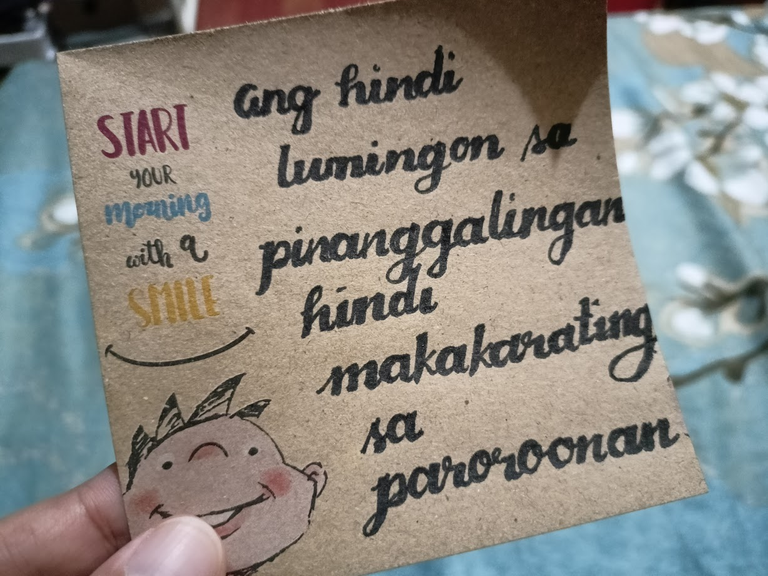 START
YOUR
morning
with a
SMILE
ang hindi
lumingon sa
pinanggalingan
hindi
makakarating
sa
paroroonan